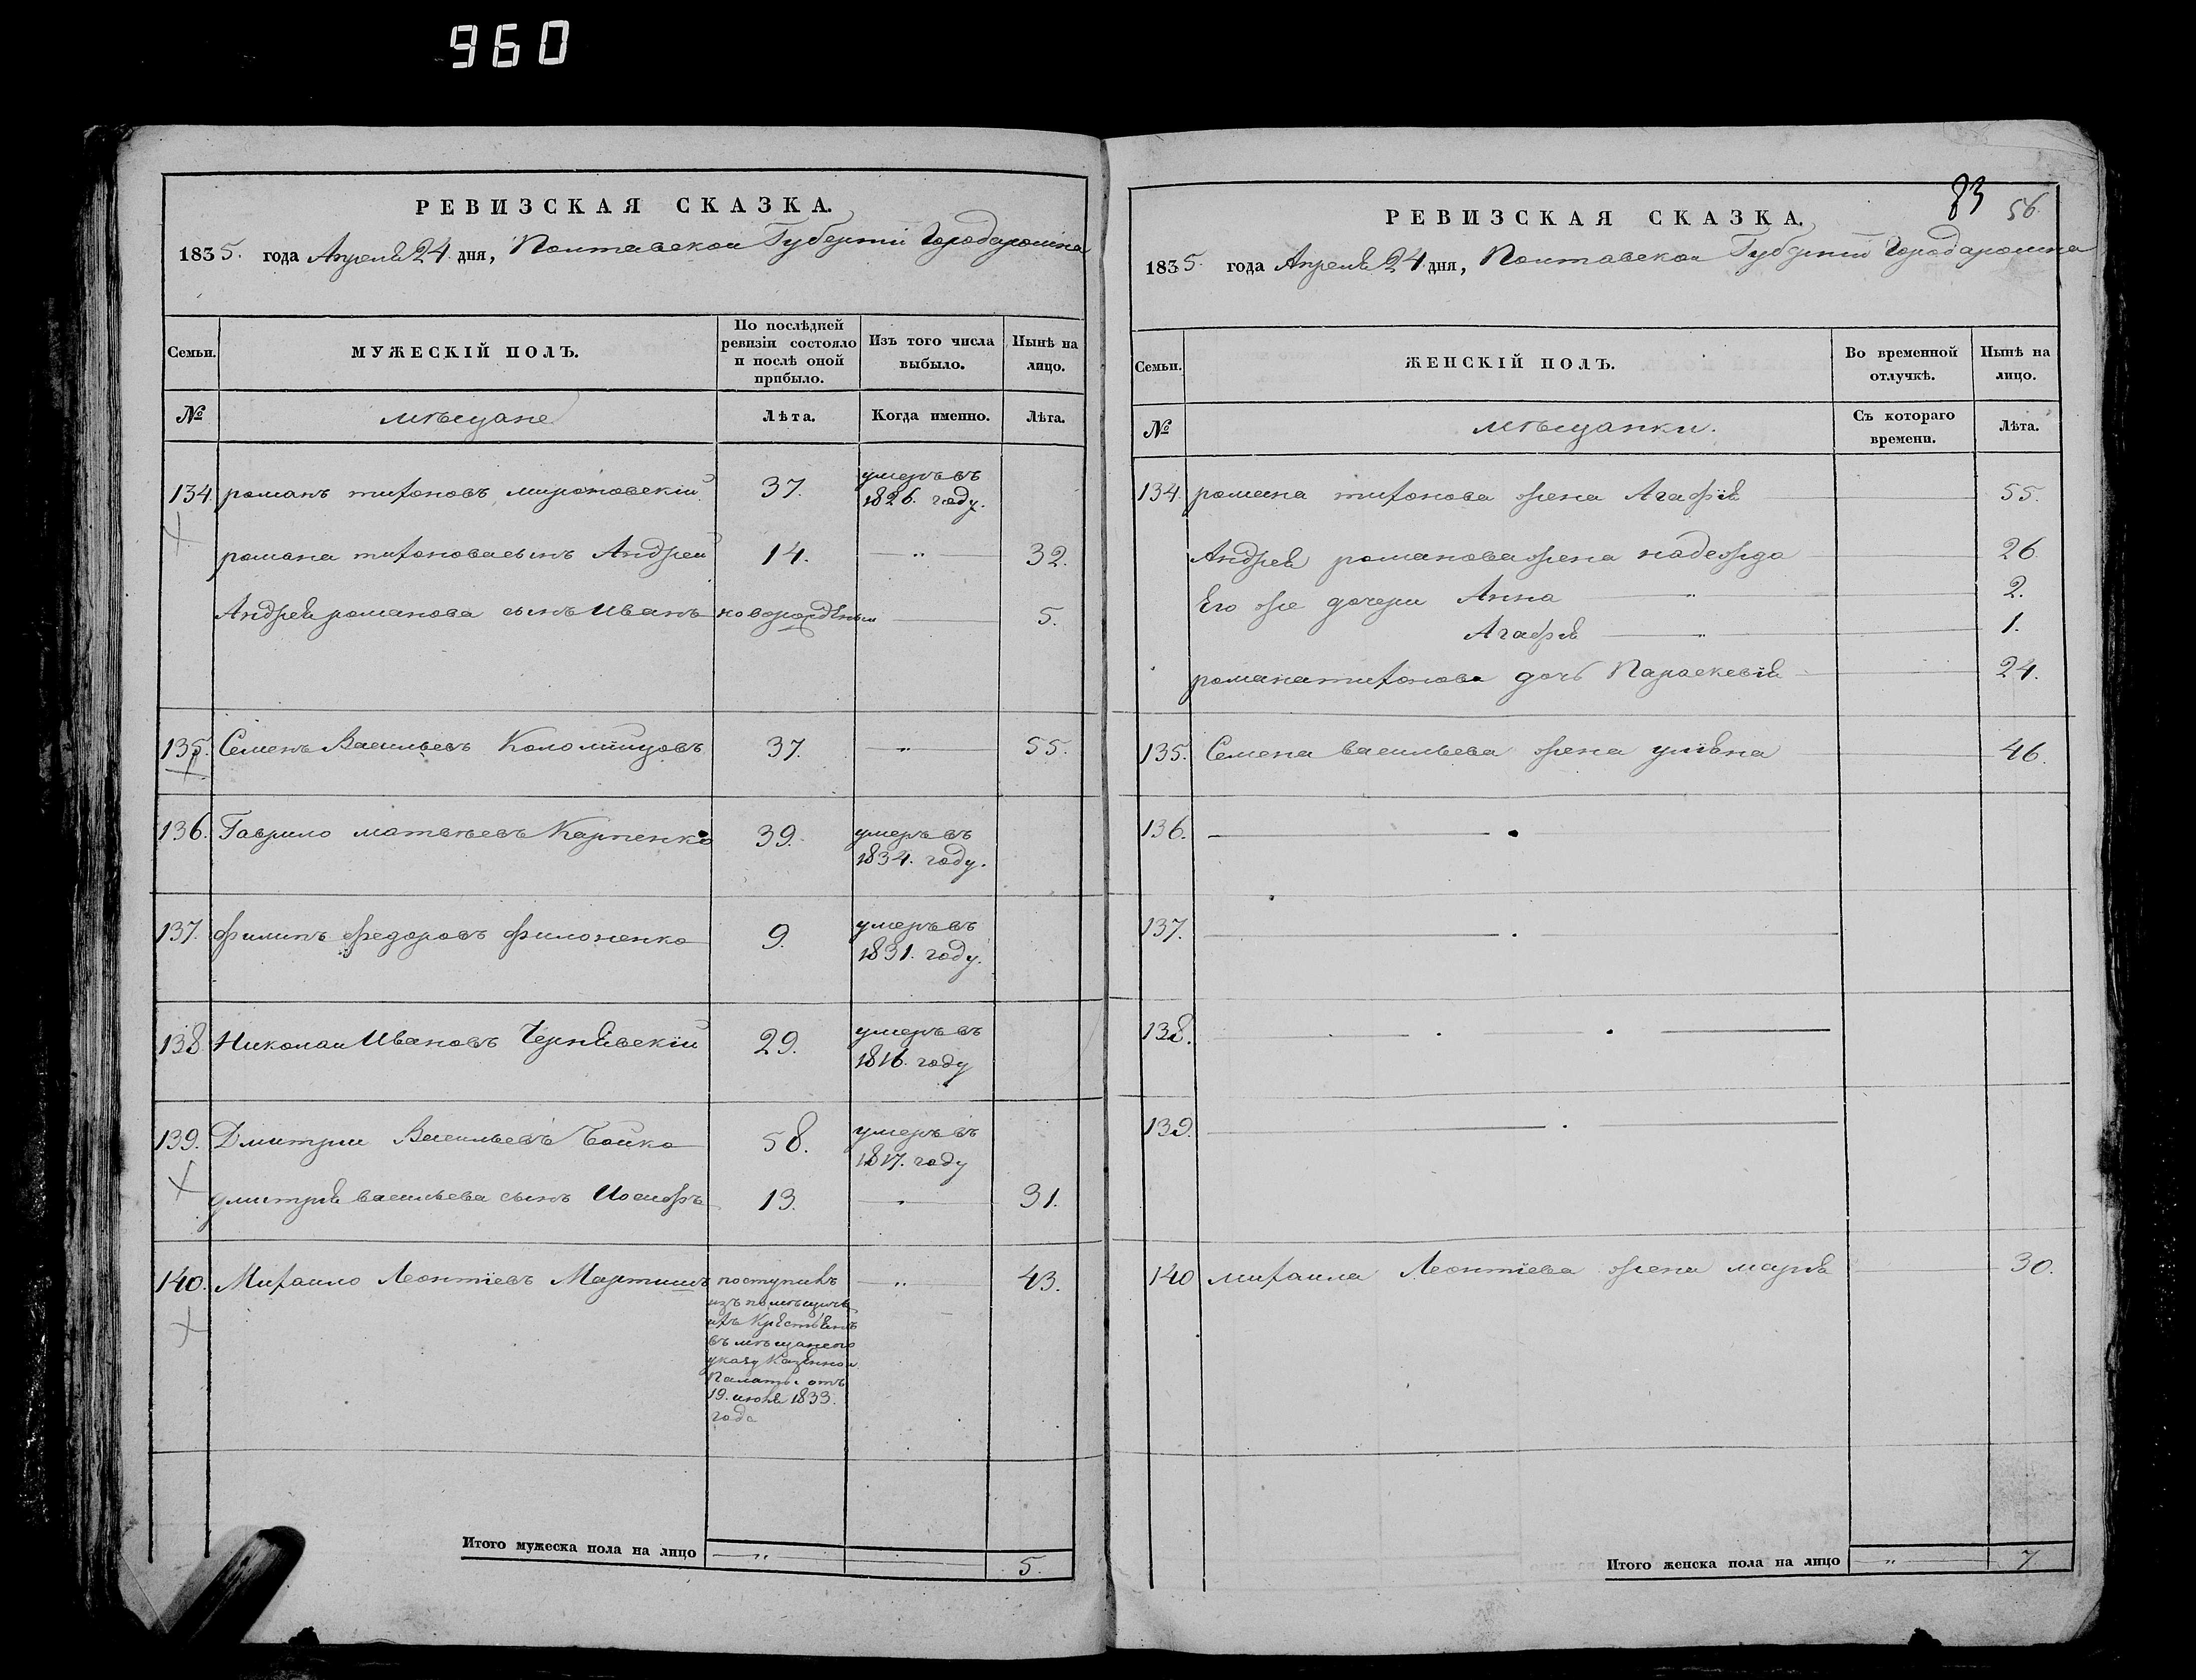 960
РЕВИЗСКАЯ СКАЗКА.
1835. года Апреля 24. дня, Полтавской Губернии Города
Семьи. МУЖЕСКІЙ ПОЛЪ. По послѣдней ревизіи состояло и послѣ оной прибыло. Изъ того числа выбыло. Нынѣ на лицо.
№ мѣщане Лѣта. Когда именно. Лѣта.
134 романъ тихоновъ 37. умеръ въ
1826. году.
романа тихонова сынъ Андрей 14. — „ — 32.
Андрея романова сынъ Иванъ новорожденъ — 5.
135. Семенъ Васильевъ Коломійцовъ 37. — „ — 55.
136. Гаврило матвѣевъ Карпенко 39. умеръ въ
1834. году.
137. филипъ федоровъ филоненко 9. умеръ въ
1831. году.
138 Николай Ивановъ Чернявскій 29. умеръ въ
1816. году
139. Дмитрий Васильевъ Бойко 58. умеръ въ
1817. году
дмитрія васильева сынъ Иосифъ 13. — „ — 31.
140. Михаило Леонтіевъ поступилъ — „ — 43.
изъ помѣщичь
ихъ Крестьянъ
въ мѣщане по
указу Казенной
Палаты отъ
19. июня 1833.
года
Итого мужеска пола на лицо — „ — 5.
83 56.
РЕВИЗСКАЯ СКАЗКА.
1835. года Апреля 24. дня, Полтавской Губернии Города
Семьи. ЖЕНСКІЙ ПОЛЪ. Во временной отлучкѣ. Нынѣ на лицо.
№ мѣщанки. Съ котораго времени. Лѣта.
134. романа тихонова жена Агафія 55.
Андрея романова жена надежда 26
Его же дочери Анна — „ — 2.
Агафія — „ — 1.
романа тихонова дочь Параскевія 24.
135. Семена васильева жена улияна 46.
136.
137.
138.
139.
140 михаила Леонтіева жена марія 30.
Итого женска пола на лицо — „ — 7